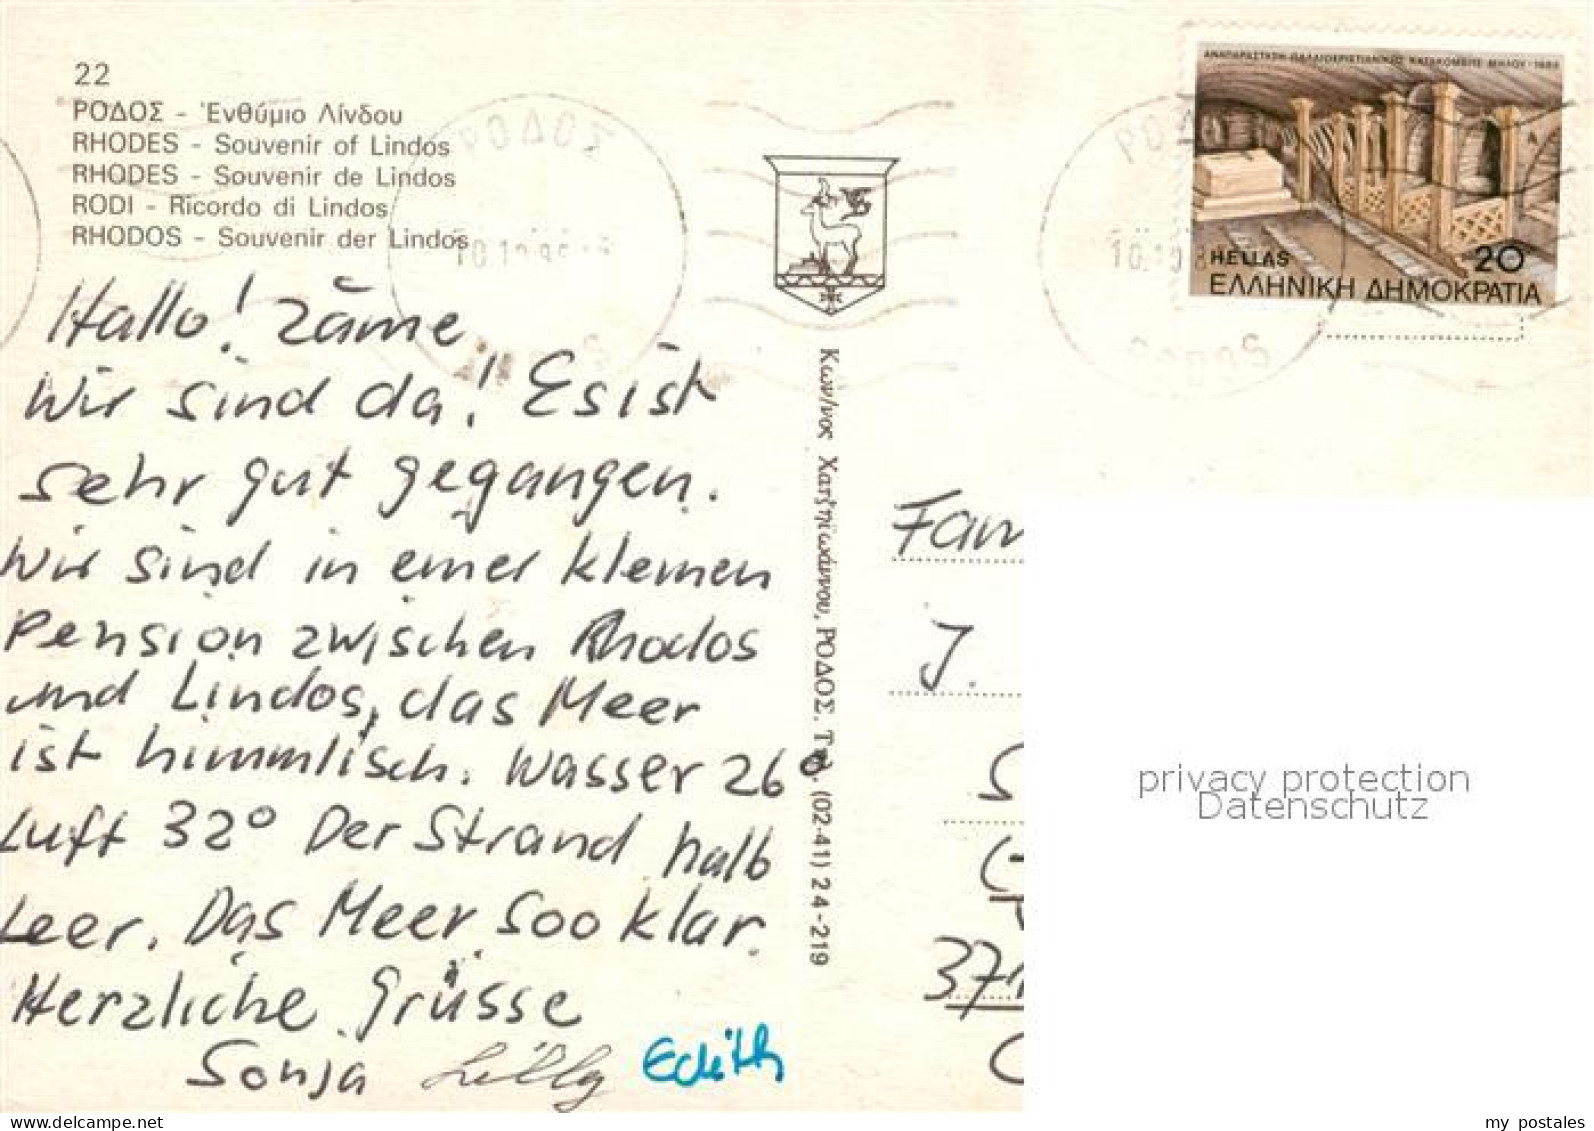 22
ΡΟΔΟΣ - Ἐνθύμιο Λίνδου
RHODES - Souvenir of Lindos
RHODES - Souvenir de Lindos
RODI - Ricordo di Lindos
RHODOS - Souvenir der Lindos
Hallo! zäme
Wir sind da! Es ist
sehr gut gegangen.
Wir sind in einer kleinen
Pension zwischen Rhodos
und Lindos, das Meer
ist himmlisch. Wasser 26°
Luft 32° Der Strand halb
Leer. Das Meer soo klar.
Herzliche Grüsse
Sonja Lilly Edith
Κων/νος Χατζηϊωάννου, ΡΟΔΟΣ. Τηλ. (02-41) 24-219
ΡΟΔΟΣ
10.10.8
RODOS
ΡΟΔ
10.10.8
RODOS
ΑΝΑΠΑΡΑΣΤΑΣΗ ΠΑΛΑΙΟΧΡΙΣΤΙΑΝΙΚΗΣ ΚΑΤΑΚΟΜΒΗΣ ΜΗΛΟΥ
HELLAS 20
ΕΛΛΗΝΙΚΗ ΔΗΜΟΚΡΑΤΙΑ
Fam
J.
S
371
privacy protection
Datenschutz
my_postales